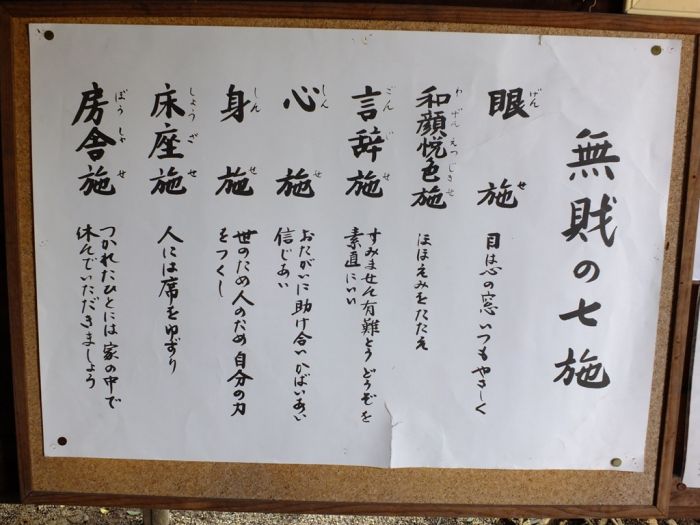 無財の七施
眼施
げんせ
目は心の窓いつもやさしく
和顔悦色施
わげんえつじきせ
ほほえみをたたえ
言辞施
ごんじせ
すみません有難とうどうぞを
素直にいい
心施
しんせ
おたがいに助け合いかばいあい
信じあい
身施
しんせ
世のため人のため自分の力
をつくし
床座施
しょうざせ
人には席をゆずり
房舎施
ぼうしゃせ
つかれたひとには家の中で
休んでいただきましょう